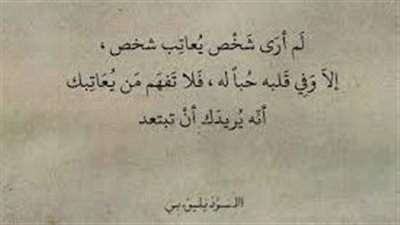 لَم أرَى شَخْص يُعاتِب شخص ،
إلاَ وَفي قَلبه حُباً له ، فَلا تَفهَم مَن يُعَاتِبك
أنّه يُريدَك أنْ تبتعد